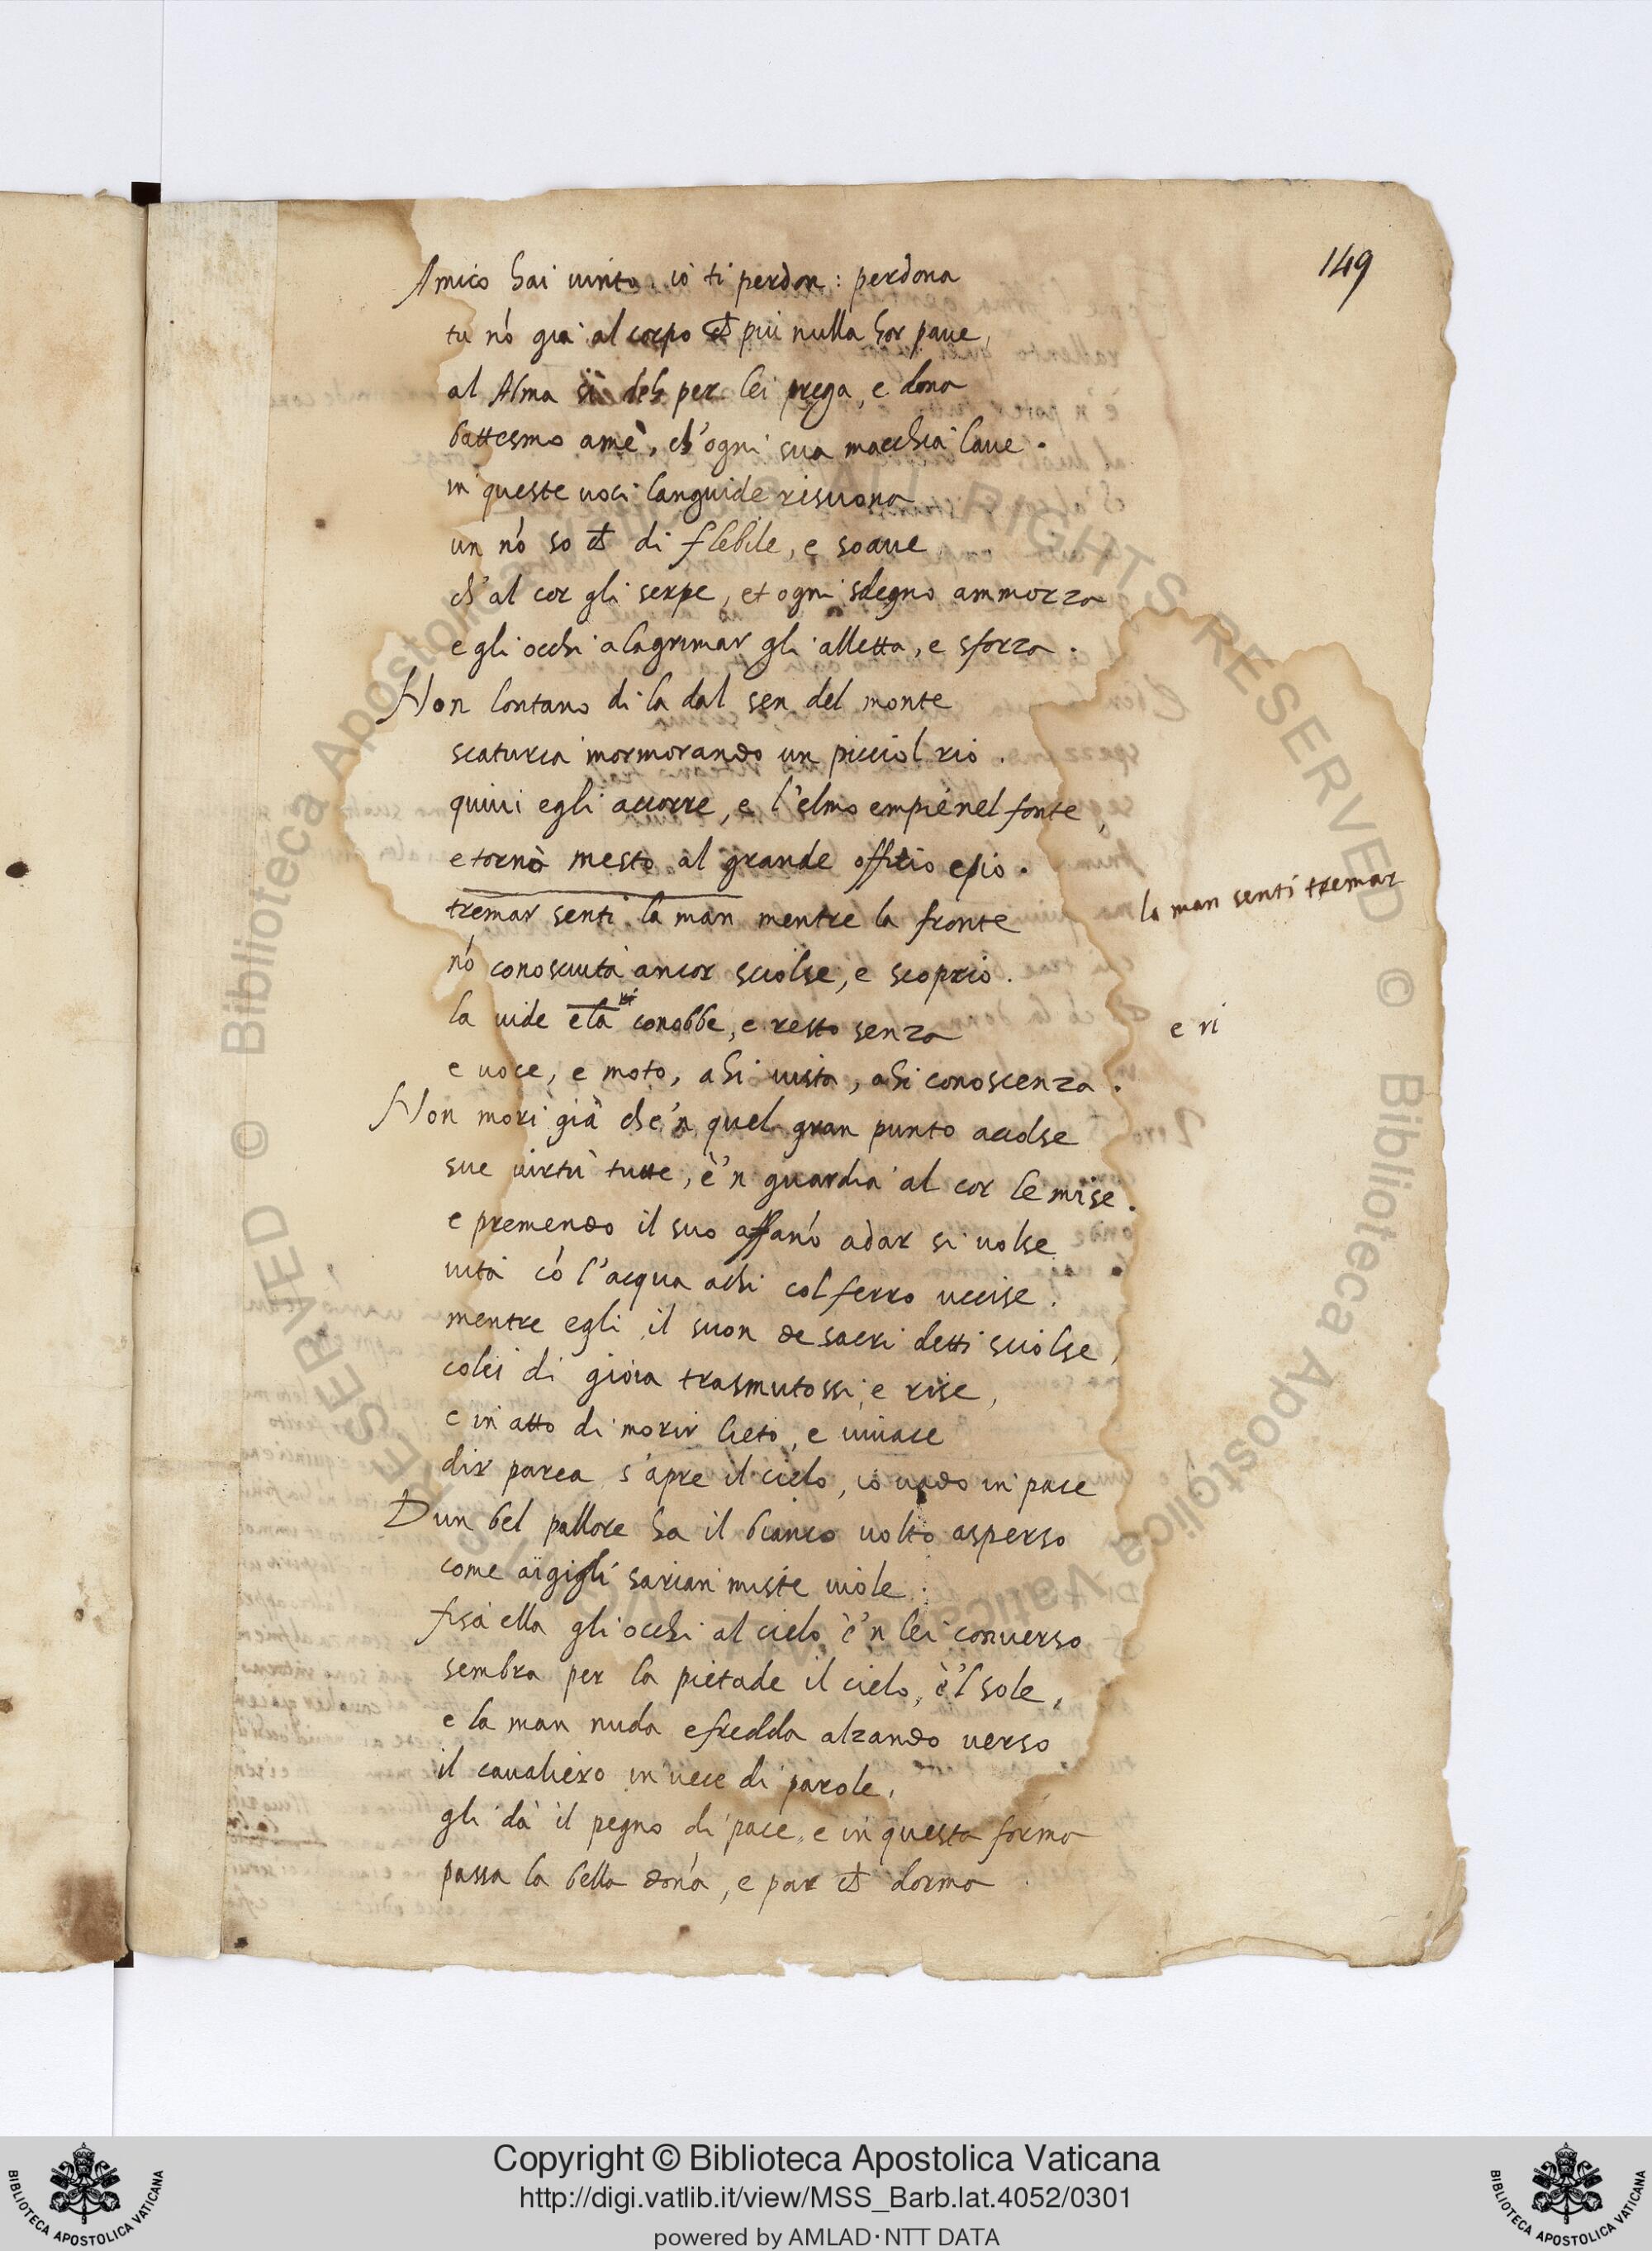 149
Amico hai uinto. io ti perdon: perdona
tu nó gia al corpo ch̄ piu nulla hor paue,
al Alma si deh per lei prega, e dona
battesmo amè, ch'ogni sua macchia laue.
in queste uoci languide risuona
un nó so ch̄ di flebile, e soaue
ch'al cor gli serpe, et ogni sdegno ammorza
e gli occhi a lagrimar gli alletta, e sforza.
Non lontano di la dal sen del monte
scaturia mormorando un picciol rio.
quiui egli accorre, e l'elmo empié nel fonte,
e tornò mesto al grande offitio e pio.
tremar senti la man mentre la fronte
la man senti tremar
nó conosciuta ancor sciolse, e scoprio.
la uide e la conobbe, e resto senza
e ri
e uoce, e moto, ahi uista, ahi conoscenza.
Non morì già che'n quel gran punto accolse
sue uirtù tutte, è'n guardia al cor le mise.
e premendo il suo affanó a dar si uolse
uita có l'acqua a chi col ferro uccise.
mentre egli il suon de sacri detti sciolse,
colei di gioia trasmutossi, e rise,
e in atto di morir lieto, e uiuace
dir parea s'apre il cielo, io uado in pace
D un bel pallore ha il bianco uolto asperso
come ai gigli sarian miste uiole:
fisa ella gli occhi al cielo è'n lei conuerso
sembra per la pietade il cielo, è'l sole,
e la man nuda e fredda alzando uerso
il caualiero in uece di parole,
gli dà il pegno di pace, e in questa forma
passa la bella doná, e par ch̄ dorma
© Biblioteca Apostolica Vaticana ALL RIGHTS RESERVED © Biblioteca Apostolica Vaticana ALL RIGHTS RESERVED
BIBLIOTECA APOSTOLICA VATICANA
Copyright © Biblioteca Apostolica Vaticana
http://digi.vatlib.it/view/MSS_Barb.lat.4052/0301
powered by AMLAD·NTT DATA
BIBLIOTECA APOSTOLICA VATICANA